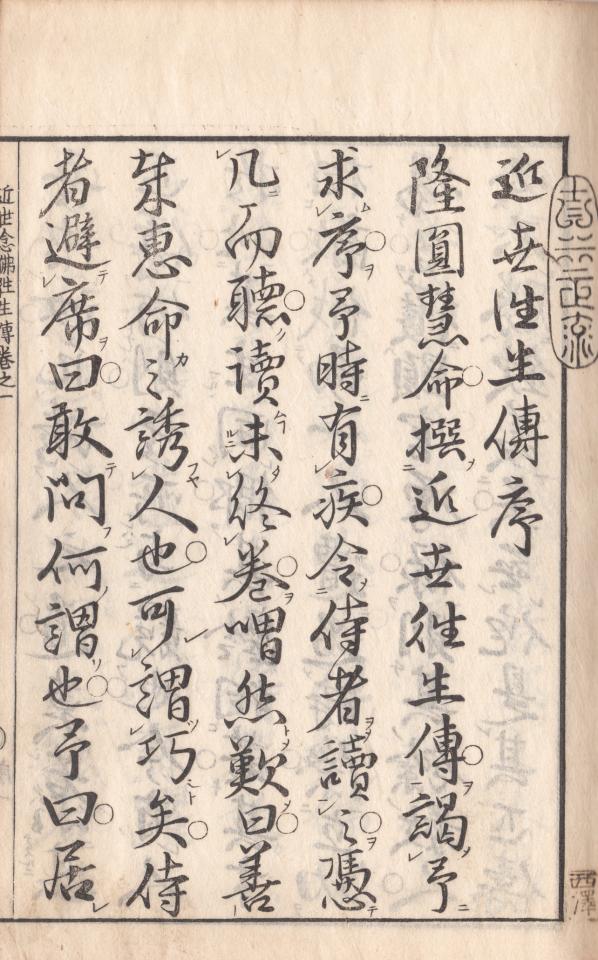 近世徃生傳序
隆圓慧命撰近世徃生傳謁予
求序予時有疾令侍者讀之憑
几而聽讀未終卷喟然歎曰善
哉惠命之誘人也可謂巧矣侍
者避席曰敢問何謂也予曰居
近世念佛徃生傳卷之一
西澤